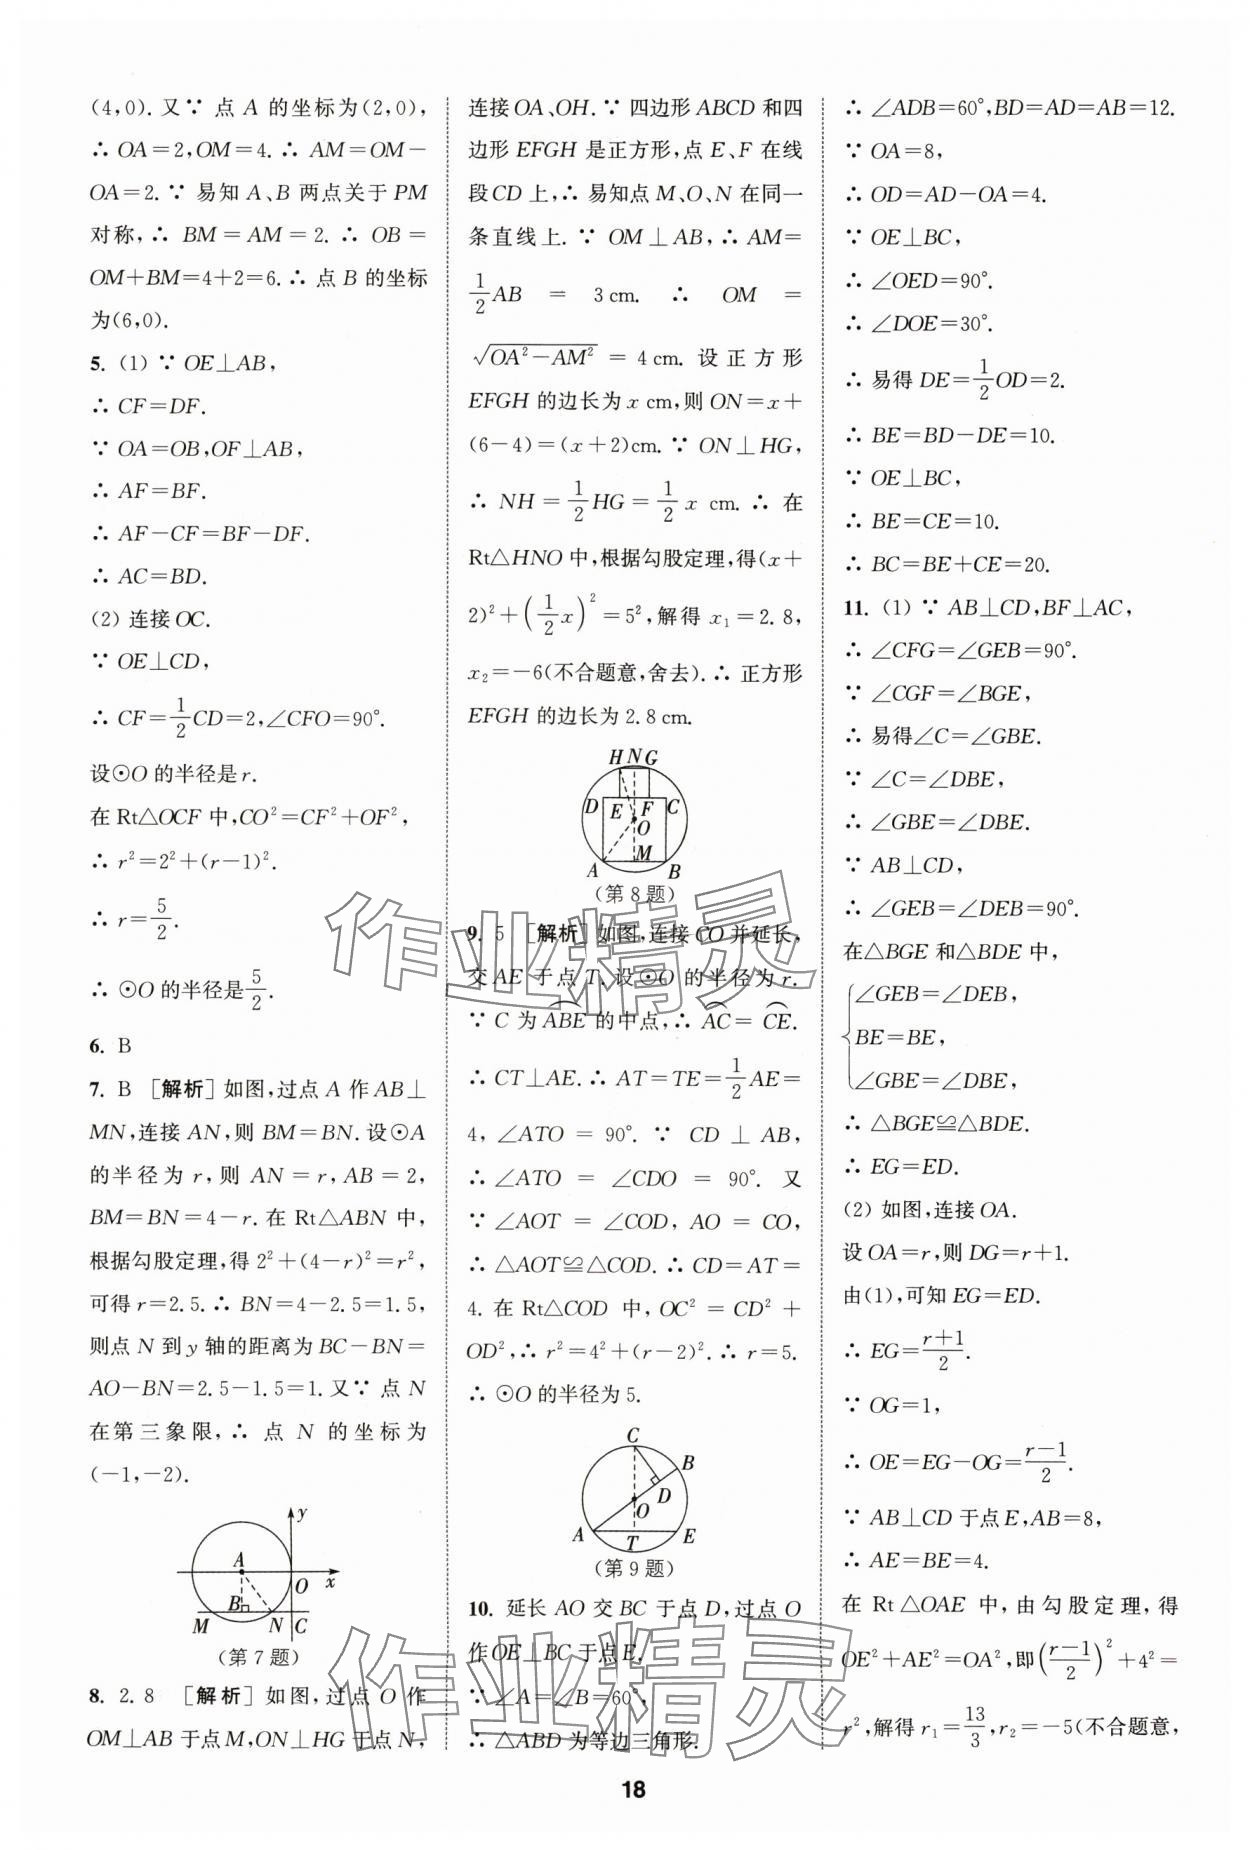 (4,0). 又∵ 点 A 的坐标为(2,0),
∴ OA=2,OM=4. ∴ AM=OM-
OA=2. ∵ 易知 A、B 两点关于 PM
对称,∴ BM=AM=2. ∴ OB=
OM+BM=4+2=6. ∴ 点 B 的坐标
为(6,0).
5. (1) ∵ OE⊥AB,
∴ CF=DF.
∵ OA=OB,OF⊥AB,
∴ AF=BF.
∴ AF-CF=BF-DF.
∴ AC=BD.
(2) 连接 OC.
∵ OE⊥CD,
∴ CF=1/2CD=2,∠CFO=90°.
设⊙O 的半径是 r.
在 Rt△OCF 中,CO²=CF²+OF²,
∴ r²=2²+(r-1)².
∴ r=5/2.
∴ ⊙O 的半径是5/2.
6. B
7. B [解析] 如图,过点 A 作 AB⊥
MN,连接 AN,则 BM=BN. 设⊙A
的半径为 r,则 AN=r,AB=2,
BM=BN=4-r. 在 Rt△ABN 中,
根据勾股定理,得 2²+(4-r)²=r²,
可得 r=2.5. ∴ BN=4-2.5=1.5,
则点 N 到 y 轴的距离为 BC-BN=
AO-BN=2.5-1.5=1. 又∵ 点 N
在第三象限,∴ 点 N 的坐标为
(-1,-2).
y
A
O
x
B
M
N
C
(第 7 题)
8. 2.8 [解析] 如图,过点 O 作
OM⊥AB 于点 M,ON⊥HG 于点 N,
连接 OA、OH. ∵ 四边形 ABCD 和四
边形 EFGH 是正方形,点 E、F 在线
段 CD 上,∴ 易知点 M、O、N 在同一
条直线上. ∵ OM⊥AB,∴ AM=
1/2AB = 3 cm. ∴ OM =
√(OA²-AM²) = 4 cm. 设正方形
EFGH 的边长为 x cm,则 ON=x+
(6-4)=(x+2)cm. ∵ ON⊥HG,
∴ NH=1/2HG=1/2x cm. ∴ 在
Rt△HNO 中,根据勾股定理,得(x+
2)²+(1/2x)²=5²,解得 x₁=2.8,
x₂=-6(不合题意,舍去). ∴ 正方形
EFGH 的边长为 2.8 cm.
H N G
D E F C
O
M
A B
(第 8 题)
9. 5 [解析] 如图,连接 CO 并延长,
交 AE 于点 T,设⊙O 的半径为 r.
∵ C 为 ABE 的中点,∴ AC = CE.
∴ CT⊥AE. ∴ AT=TE=1/2AE=
4,∠ATO = 90°. ∵ CD⊥AB,
∴ ∠ATO = ∠CDO = 90°. 又
∵ ∠AOT = ∠COD, AO = CO,
∴ △AOT≌△COD. ∴ CD=AT=
4. 在 Rt△COD 中,OC²=CD²+
OD²,∴ r²=4²+(r-2)². ∴ r=5.
∴ ⊙O 的半径为 5.
C
B
D
O
A
T
E
(第 9 题)
10. 延长 AO 交 BC 于点 D,过点 O
作 OE⊥BC 于点 E.
∵ ∠A=∠B=60°,
∴ △ABD 为等边三角形.
∴ ∠ADB=60°,BD=AD=AB=12.
∵ OA=8,
∴ OD=AD-OA=4.
∵ OE⊥BC,
∴ ∠OED=90°.
∴ ∠DOE=30°.
∴ 易得 DE=1/2OD=2.
∴ BE=BD-DE=10.
∵ OE⊥BC,
∴ BE=CE=10.
∴ BC=BE+CE=20.
11. (1) ∵ AB⊥CD,BF⊥AC,
∴ ∠CFG=∠GEB=90°.
∵ ∠CGF=∠BGE,
∴ 易得∠C=∠GBE.
∵ ∠C=∠DBE,
∴ ∠GBE=∠DBE.
∵ AB⊥CD,
∴ ∠GEB=∠DEB=90°.
在△BGE 和△BDE 中,
∠GEB=∠DEB,
BE=BE,
∠GBE=∠DBE,
∴ △BGE≌△BDE.
∴ EG=ED.
(2) 如图,连接 OA.
设 OA=r,则 DG=r+1.
由(1),可知 EG=ED.
∴ EG=(r+1)/2.
∵ OG=1,
∴ OE=EG-OG=(r-1)/2.
∵ AB⊥CD 于点 E,AB=8,
∴ AE=BE=4.
在 Rt△OAE 中,由勾股定理,得
OE²+AE²=OA²,即((r-1)/2)²+4²=
r²,解得 r₁=13/3,r₂=-5(不合题意,
18
作业精灵
作业精灵